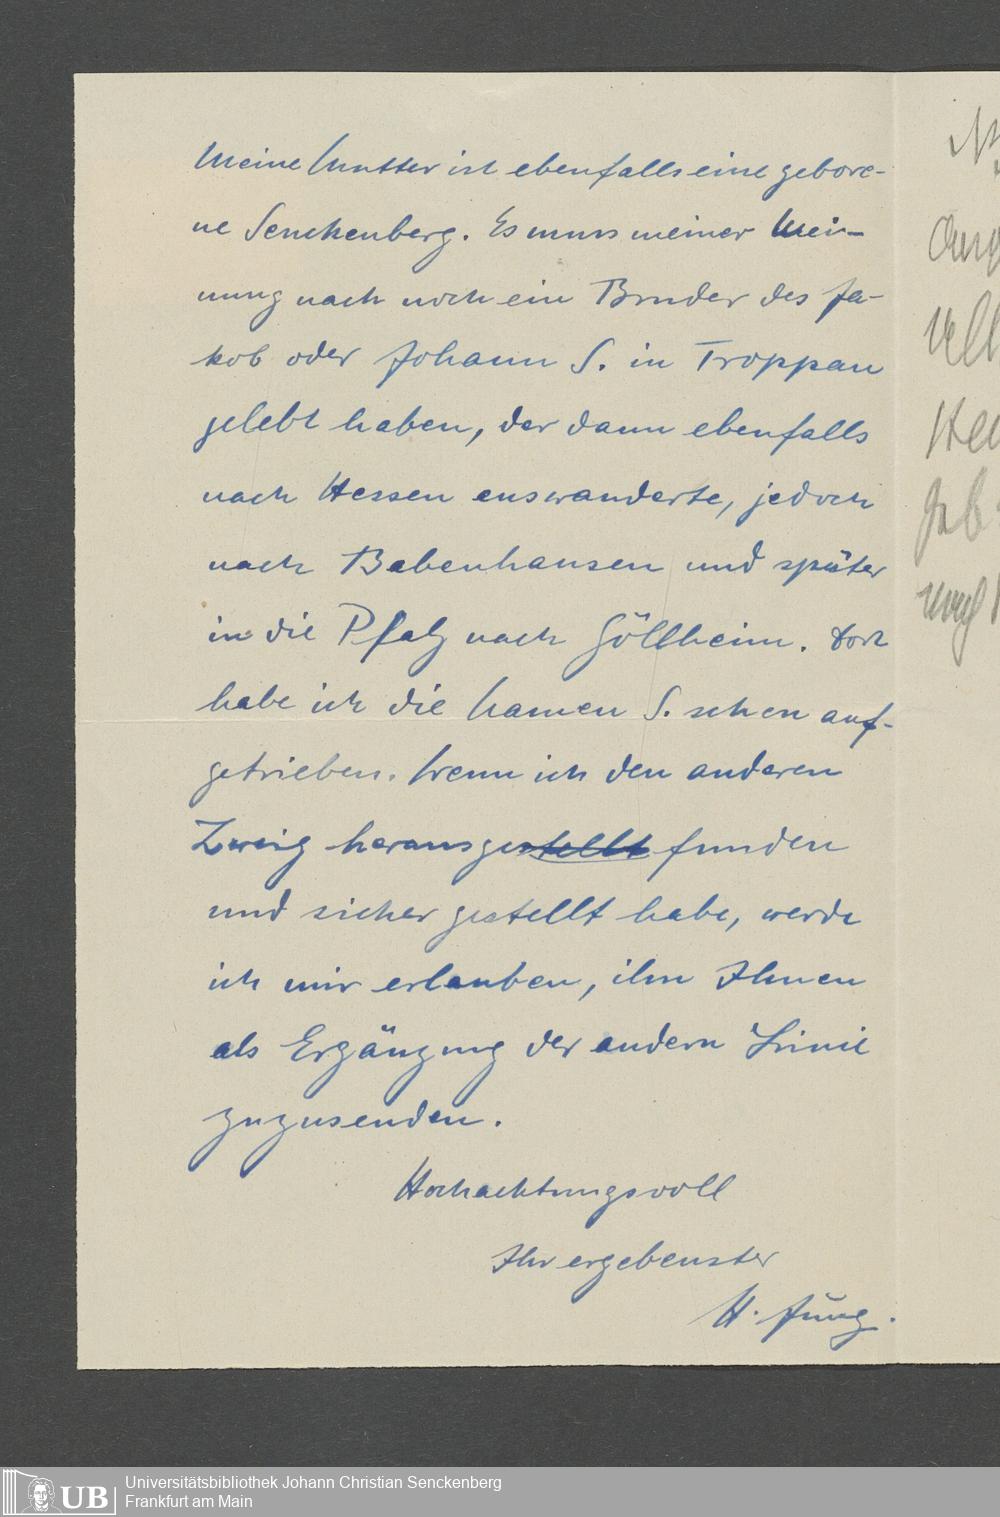 Meine Mutter ist ebenfalls eine gebore-
ne Senckenberg. Es muss meiner Mei-
nung nach noch ein Bruder des Ja-
kob oder Johann S. in Troppau
gelebt haben, der dann ebenfalls
nach Hessen auswanderte, jedoch
nach Babenhausen und später
in die Pfalz nach Göllheim. Dort
habe ich die Namen S. schon auf-
getrieben. Wenn ich den anderen
Zweig herausgestellt funden
und sicher gestellt habe, werde
ich mir erlauben, ihn Ihnen
als Ergänzung der andern Linie
zuzusenden.
Hochachtungsvoll
Ihr ergebenster
H. Jung.
Universitätsbibliothek Johann Christian Senckenberg
Frankfurt am Main
UB